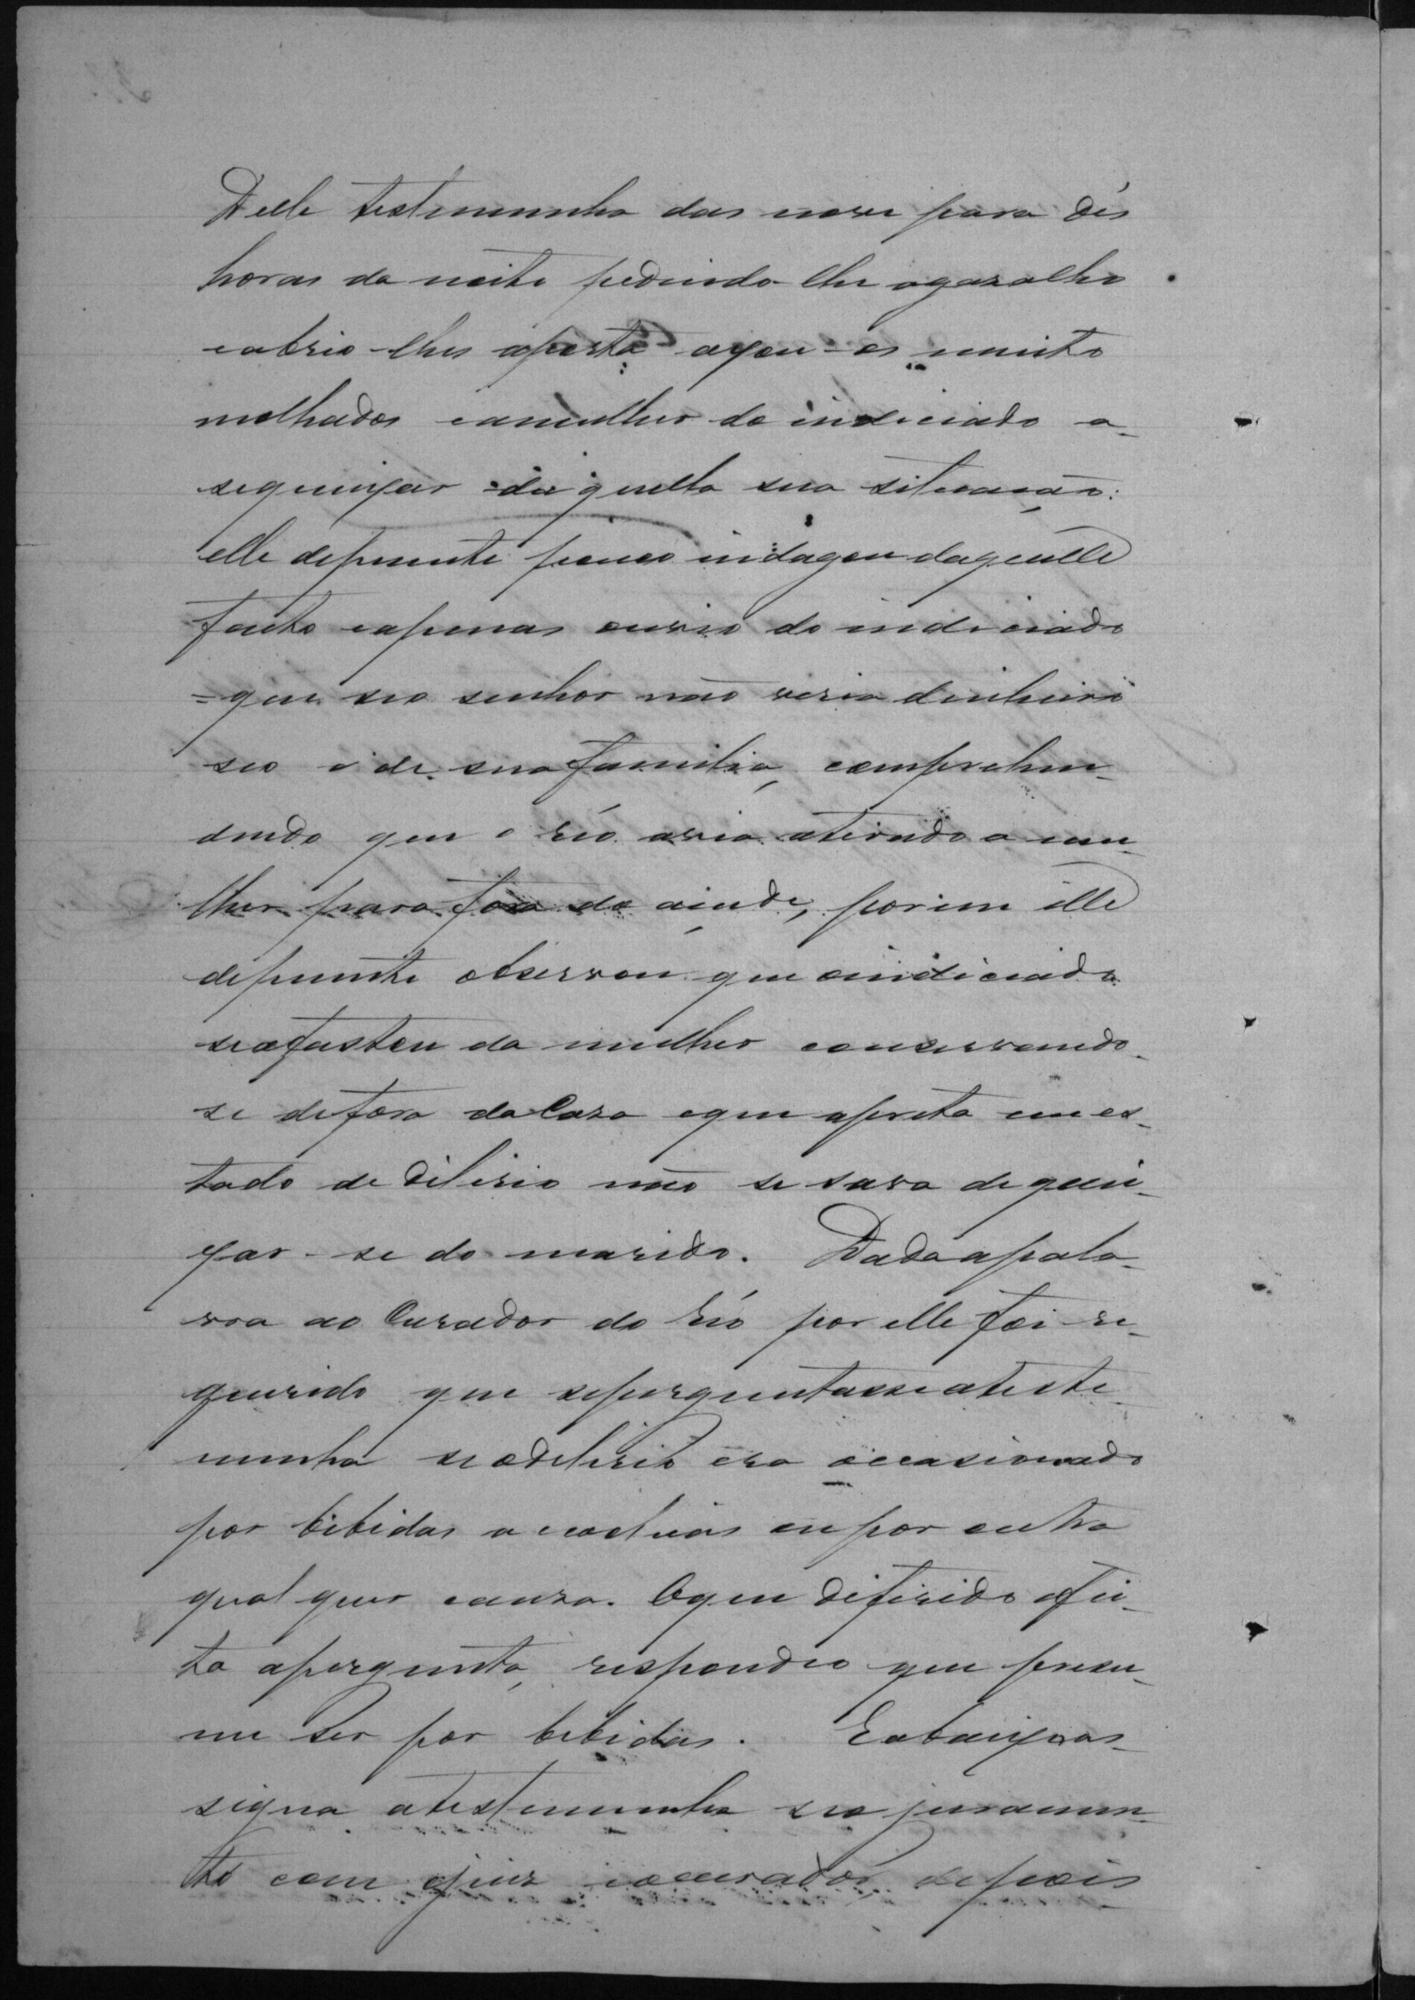 Delle testemunha das nove para dés
horas da noite pedindo-lhe agazalho
eabrio-lhes aporta axou-os muito
molhados eamulher do indiciado a-
sequeixar daquella sua situação:
elle depoente pouco indagou daquelle
facto eapenas ouvio do indiciado
que seo senhor não veria dinheiro
seo e de sua familia, comprehen-
dendo que o réo avia atirado a mu-
lher para fora do açude, porem elle
depoente observou que oindiciado
seafastou da mulher conservando-
se defora da Casa eque apreta em es-
tado de delirio não se sava de quei-
xar-se do marido. Dada apala-
vra ao Curador do réo por elle foi re-
querido que seperguntasse ateste-
munha seodelirio era occasionado
por bebidas alcoolicas ou por outra
qual quer causa. Oque deferido efei-
ta apergunta, respondeo que presu-
me ser por bebidas. Eabaixoas-
signa atestemunha seo juramen-
to com ojuiz eocurador, depois